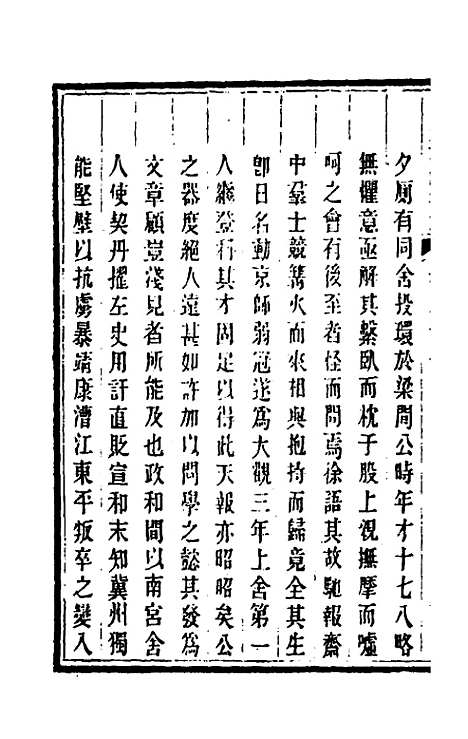 夕厠有同舍投環於梁間公時年才十七八略
無懼意亟解其繫臥而枕于股上視撫摩而噓
呵之會有後至者怪而問焉徐語其故馳報齋
中羣士競篝火而來相與抱持而歸竟全其生
卽日名動京師弱冠遂爲大觀三年上舍第一
人繼登科其才固足以得此天報亦昭昭矣公
之器度絕人遠甚如許加以問學之懿其發爲
文章顧豈淺見者所能及也政和間以南宮舍
人使契丹擢左史用訐直貶宣和末知冀州獨
能堅壁以抗虜暴靖康漕江東平叛卒之變入